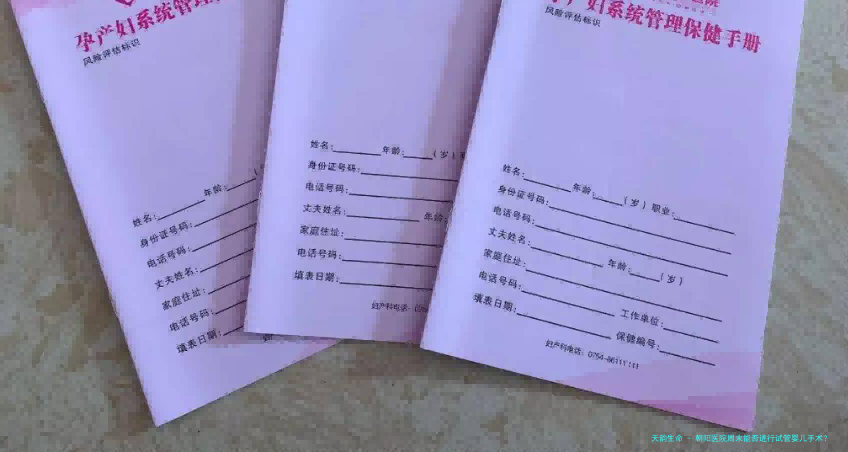 孕产妇系统管理
风险评估标识
姓名: 年龄:
身份证号码:
电话号码:
丈夫姓名:
家庭住址:
电话号码:
填表日期:
姓名: 年龄: (岁)
身份证号码:
电话号码:
丈夫姓名: 年龄:
家庭住址:
电话号码:
填表日期:
妇产科电话:
医院
孕产妇系统管理保健手册
风险评估标识
姓名: 年龄: (岁) 职业:
身份证号码:
电话号码:
丈夫姓名: 年龄: (岁)
家庭住址:
电话号码: 工作单位:
填表日期: 保健编号:
妇产科电话: 0754-86111111
天韵生命 - 朝阳医院周末能否进行试管婴儿手术?